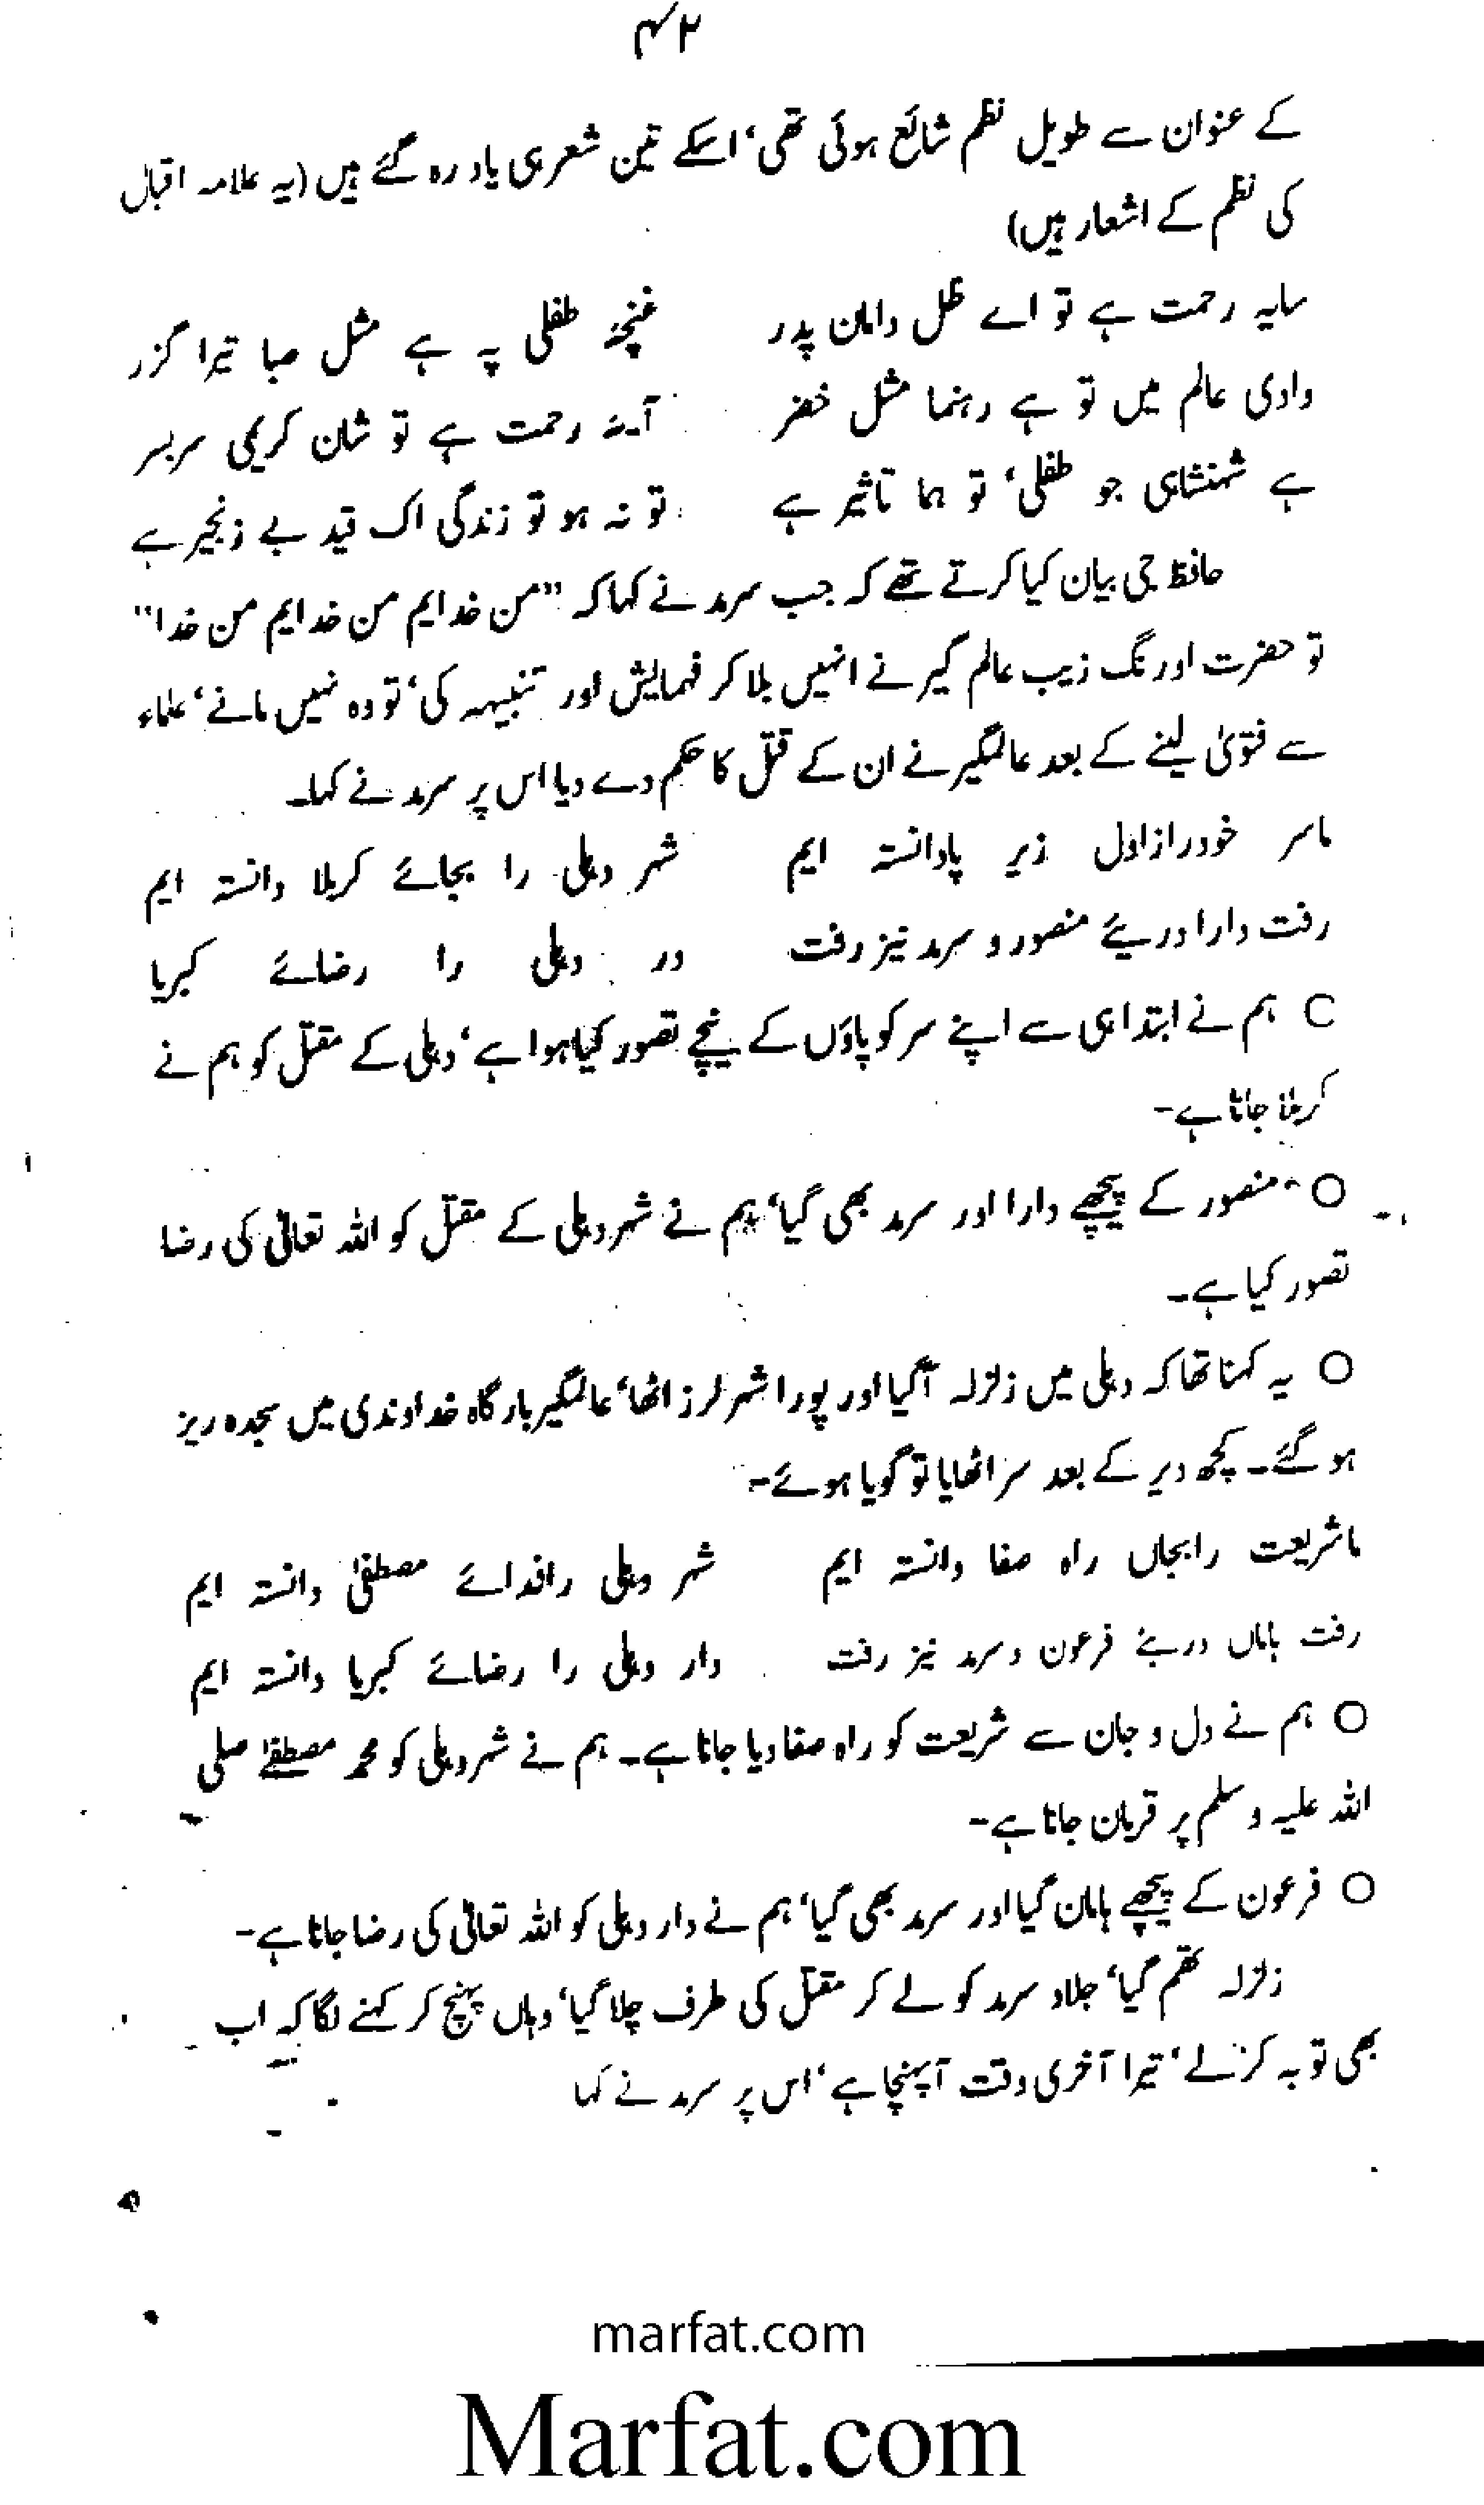 ۴۲
کے عنوان سے طویل نظم شائع ہوئی تھی، اسکے تین شعر ہی یاد رہ گئے ہیں (یہ علامہ اقبال
کی نظم کے اشعار ہیں)
سایہ رحمت ہے تو اے ظل دامان پدر غنچۂ طفلی پہ ہے مثل صبا تیرا گزر
وادی عالم میں تو ہے رہنما مثل خضر آیۂ رحمت ہے تو شان کریمی سربسر
ہے شہنشاہی جو طفلی، تو ہما تاثیر ہے تو نہ ہو تو زندگی اک قید بے زنجیر ہے
حافظ جی بیان کیا کرتے تھے کہ جب سرمد نے کہا کہ "من خدایم من خدایم من خدا"
تو حضرت اورنگ زیب عالم گیر نے انہیں بلا کر فہمایش اور تنبیہہ کی، تو وہ نہیں مانے، علماء
سے فتویٰ لینے کے بعد عالمگیر نے ان کے قتل کا حکم دے دیا اس پر سرمد نے کہا۔
ماسر خودرا ازاول زیر پادانستہ ایم شہر دہلی را بجائے کربلا دانستہ ایم
رفت دارا درپئے منصور و سرمد نیز رفت در دہلی را رضائے کبریا
○ ہم نے ابتدا ہی سے اپنے سر کو پاؤں کے نیچے تصور کیا ہوا ہے، دہلی کے مقتل کو ہم نے
کربلا جانا ہے۔
○ منصور کے پیچھے دارا اور سرمد بھی گیا، ہم نے شہر دہلی کے مقتل کو اللہ تعالیٰ کی رضا
تصور کیا ہے۔
○ یہ کہنا تھا کہ دہلی میں زلزلہ آگیا اور پورا شہر لرز اٹھا، عالمگیر بارگاہ خداوندی میں سجدہ ریز
ہو گئے۔ کچھ دیر کے بعد سر اٹھایا تو گویا ہوئے۔
ماشریعت رابجاں راہ صفا دانستہ ایم شہر دہلی رافدائے مصطفیٰ دانستہ ایم
رفت ہاماں درپئے فرعون و سرمد نیز رفت دار دہلی را رضائے کبریا دانستہ ایم
○ ہم نے دل و جان سے شریعت کو راہ صفا دیا جانا ہے۔ ہم نے شہر دہلی کو محمد مصطفےٰ صلی
اللہ علیہ وسلم پر قربان جانا ہے۔
○ فرعون کے پیچھے ہامان گیا اور سرمد بھی گیا، ہم نے دار دہلی کو اللہ تعالیٰ کی رضا جانا ہے۔
زلزلہ تھم گیا، جلاد سرمد کو لے کر مقتل کی طرف چلا گیا، وہاں پہنچ کر کہنے لگا کہ اب
بھی توبہ کرلے، تیرا آخری وقت آپہنچا ہے، اس پر سرمد نے کہا
marfat.com
Marfat.com